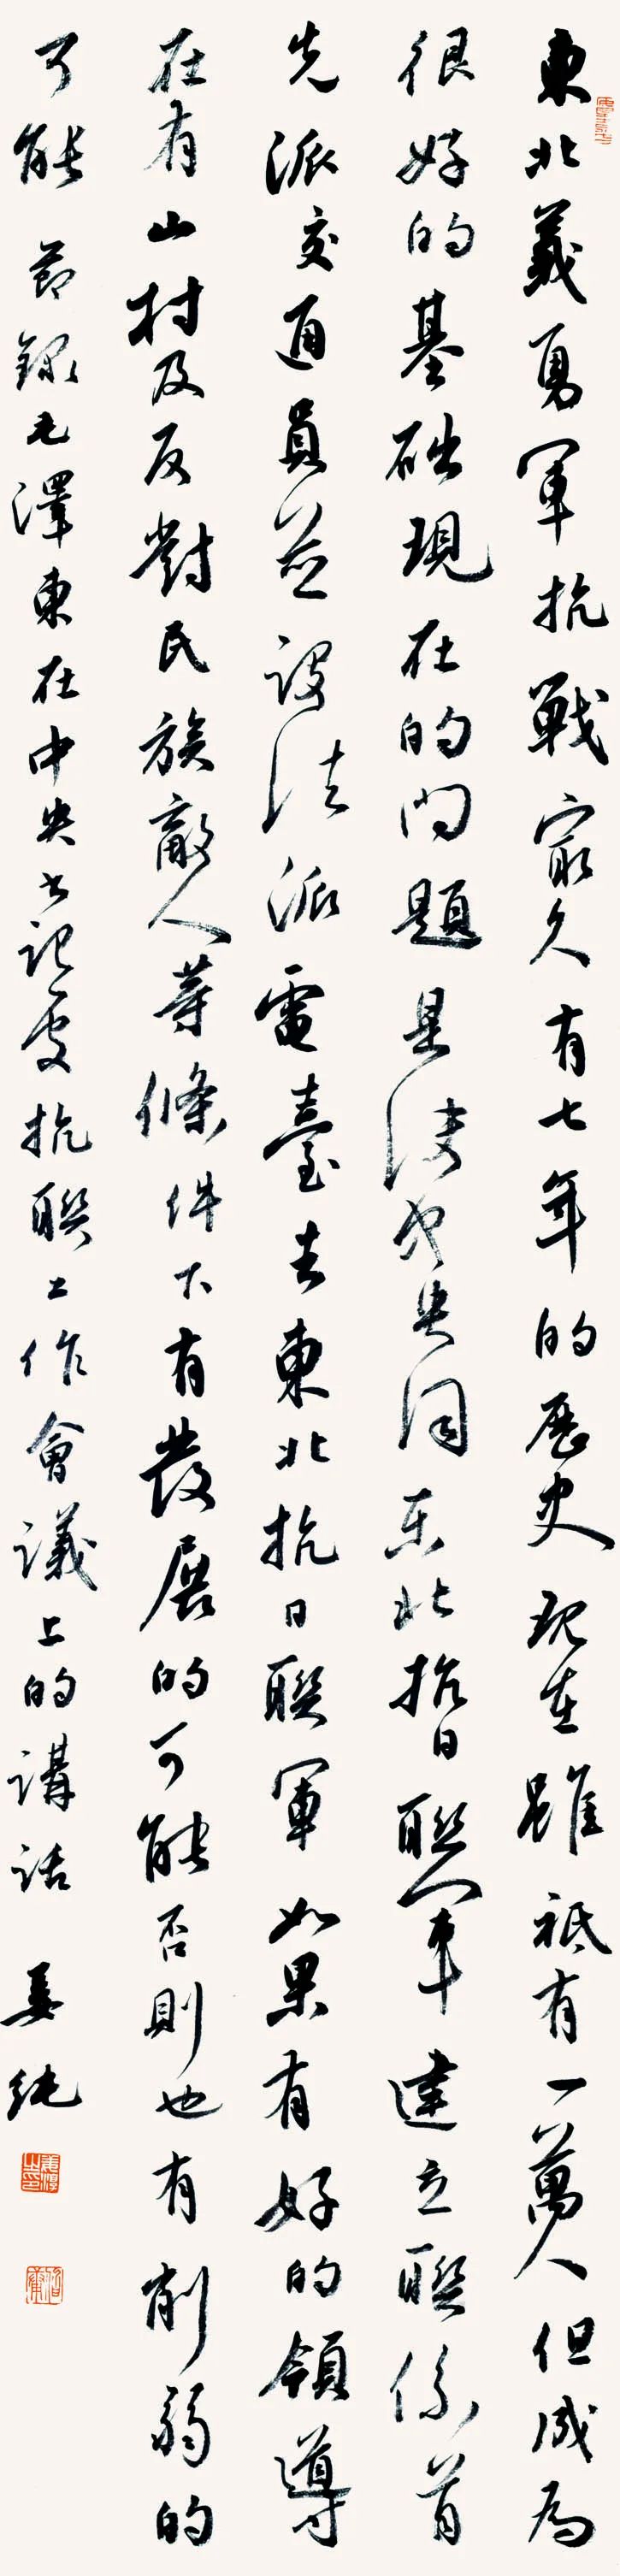 東北義勇軍抗戰最久有七年的歷史現在雖祇有一萬人但成為
很好的基础現在的问題是使中央同东北抗日聯軍建立聯係首
先派交通員並設法派電臺去東北抗日聯軍如果有好的領導
在有山村及反對民族敵人等條件下有發展的可能否則也有削弱的
可能 節録毛澤東在中央书記處抗聯工作會議上的講話 姜纯